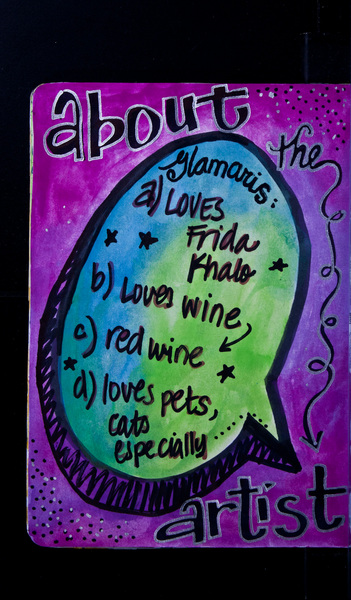 about
the
Glamaris:
a) LOVES
Frida
Khalo
b) Loves wine
c) red wine
d) loves pets,
cats
especially
artist